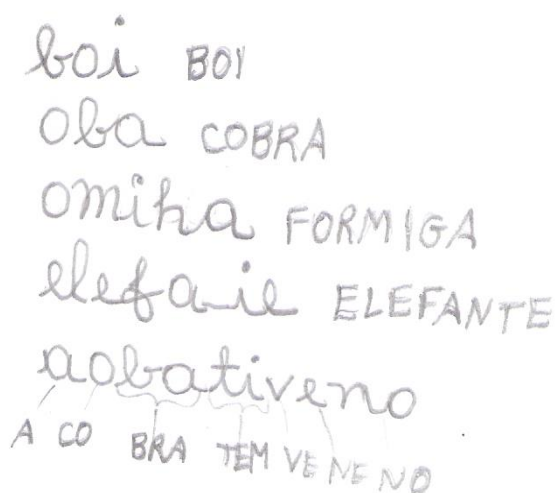 boi BOI
oba COBRA
omiha FORMIGA
elefaie ELEFANTE
aobativeno
A CO BRA TEM VE NE NO